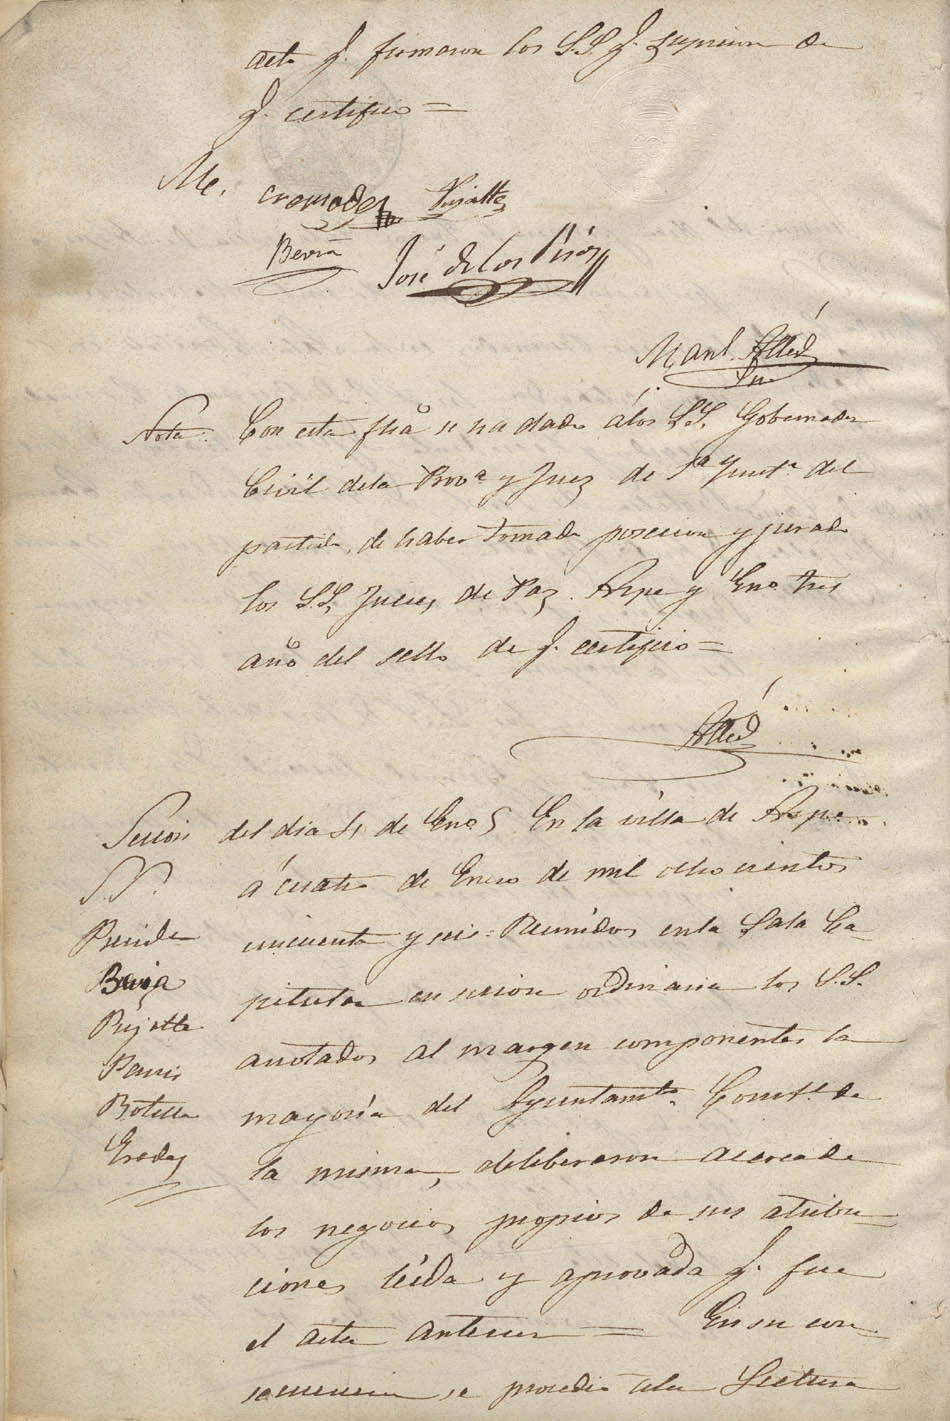 acto q. firmaron los S.S. q. supieron de
q. certifico =
Me.
Cremades Pujalte
Bevia José de los Pérez
Manl. Alted
Srio
Nota. Con esta fha se ha dado á los S.S. Gobernador
Civil dela Prova y Juez de 1ª Ynsta del
partido, de haber tomado posecion y jurado
los S.S. Jueces de Paz. Aspe y Eno. tres
año del sello de q. certifico =
Alted
Sesion del dia 4 de Eno. En la villa de Aspe
S.S. á cuatro de Enero de mil ocho cientos
Preside cincuenta y seis = Reunidos en la Sala Ca-
pitular en sesion ordinaria los S.S.
Pujalte anotados al margen componentes la
Pavis
Botella mayoría del Ayuntamto. Constl. de
la misma, deliberaron acerca de
los negocios propios de sus atribu-
ciones leida y aprovada q. fue
el acta anterior = En su con-
secuencia se procedio ala Lectura